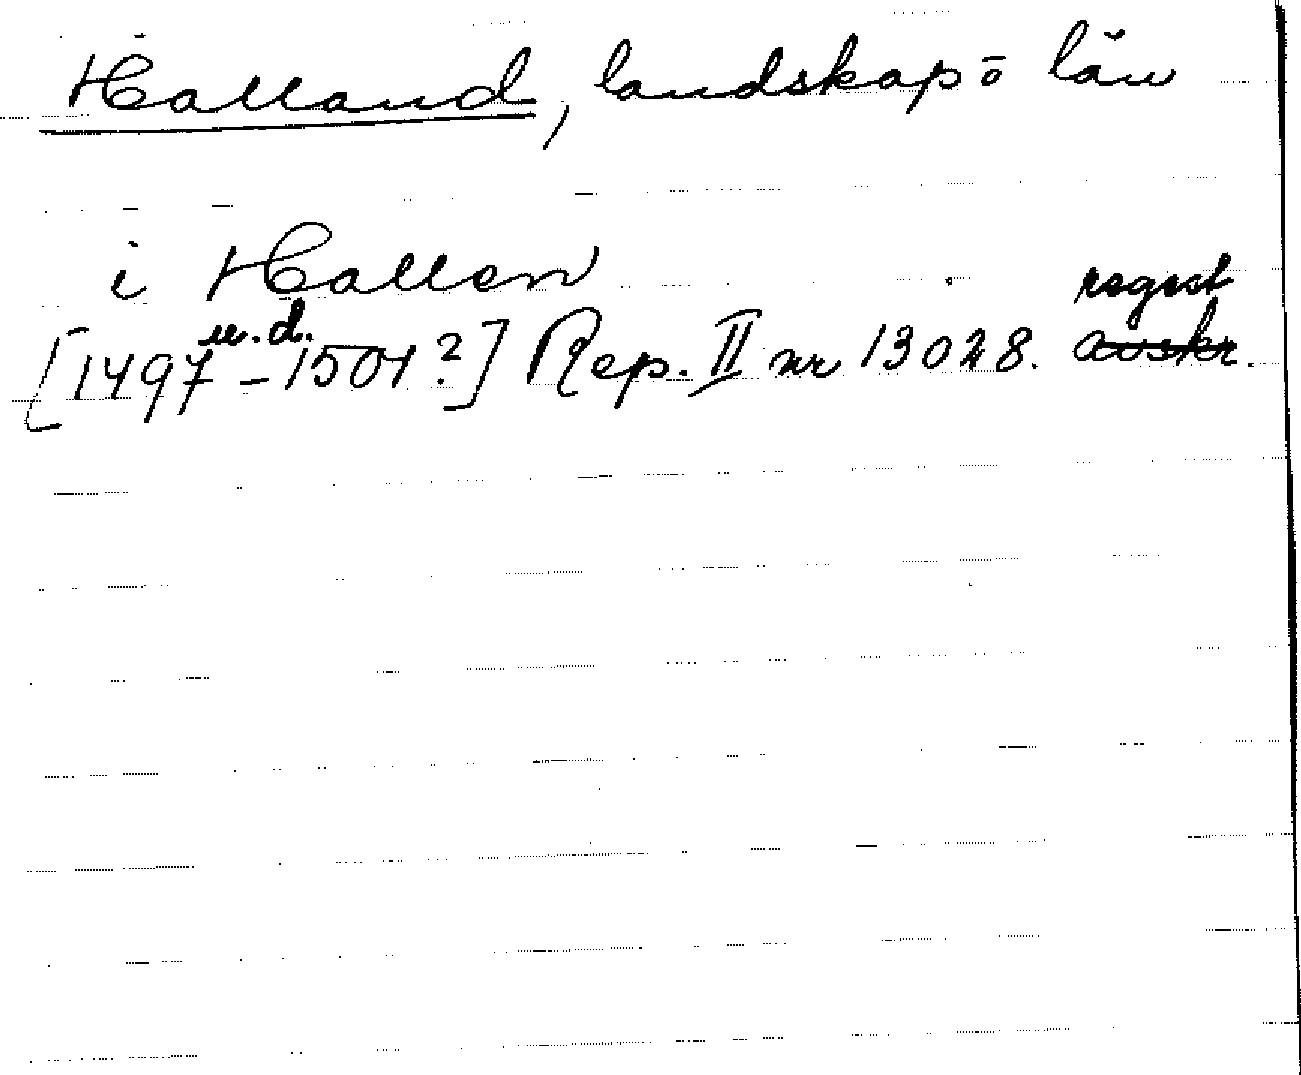 Halland, landskap o län
i Hallen
u.d. regest
[1497–1501?] Rep. II nr 13028. avskr.